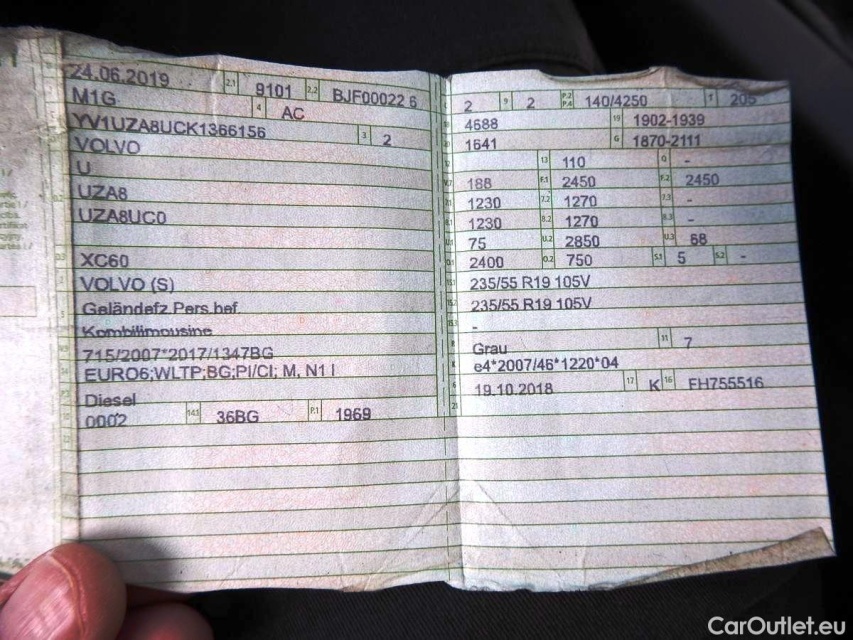 24.06.2019 2.1 9101 2.2 BJF00022 6
M1G 4 AC
YV1UZA8UCK1366156 3 2
VOLVO
U
UZA8
UZA8UC0
XC60
VOLVO (S)
Geländefz.Pers.bef.
Kombilimousine
715/2007*2017/1347BG
EURO6;WLTP;BG;PI/CI; M, N1 I
Diesel
0002 14.1 36BG P.1 1969
2 9 2 P.2 P.4 140/4250 T 205
4688 19 1902-1939
1641 G 1870-2111
13 110 Q -
188 F.1 2450 F.2 2450
1230 7.2 1270 7.3 -
1230 8.2 1270 8.3 -
75 U.2 2850 U.3 68
2400 O.2 750 S.1 5 S.2 -
235/55 R19 105V
235/55 R19 105V
-
Grau 11 7
e4*2007/46*1220*04
19.10.2018 17 K 16 FH755516
CarOutlet.eu